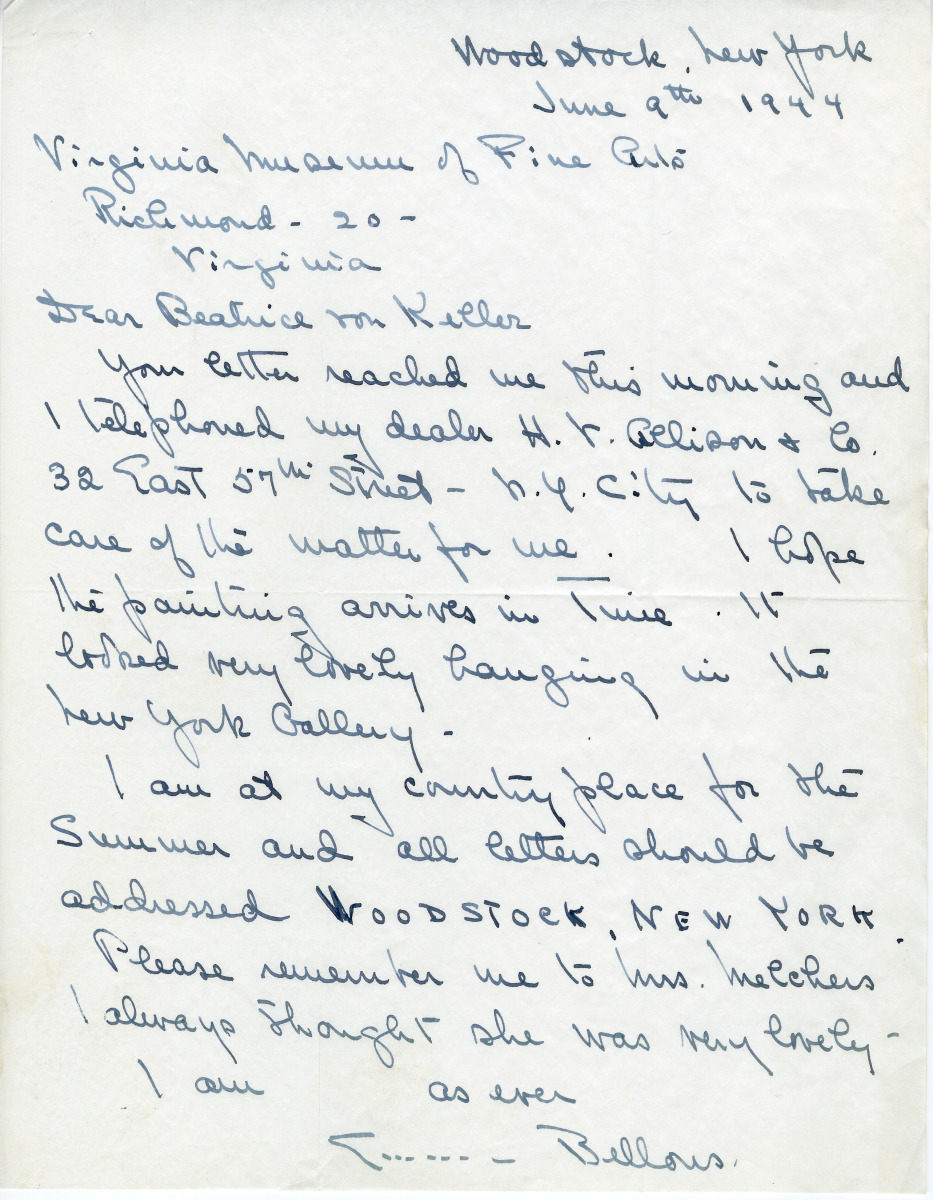 Woodstock, New York
June 9th 1944
Virginia Museum of Fine Arts
Richmond - 20 -
Virginia
Dear Beatrice von Keller
Your letter reached me this morning and
I telephoned my dealer H. V. Allison & Co.
32 East 57th Street - N.Y. City to take
care of the matter for me. I hope
the painting arrives in Time. It
looked very lovely hanging in the
New York Gallery -
I am at my country place for the
Summer and all letters should be
addressed WOODSTOCK, NEW YORK.
Please remember me to Mrs. Melchers
I always thought she was very lovely -
I am as ever
E...... - Bellows.